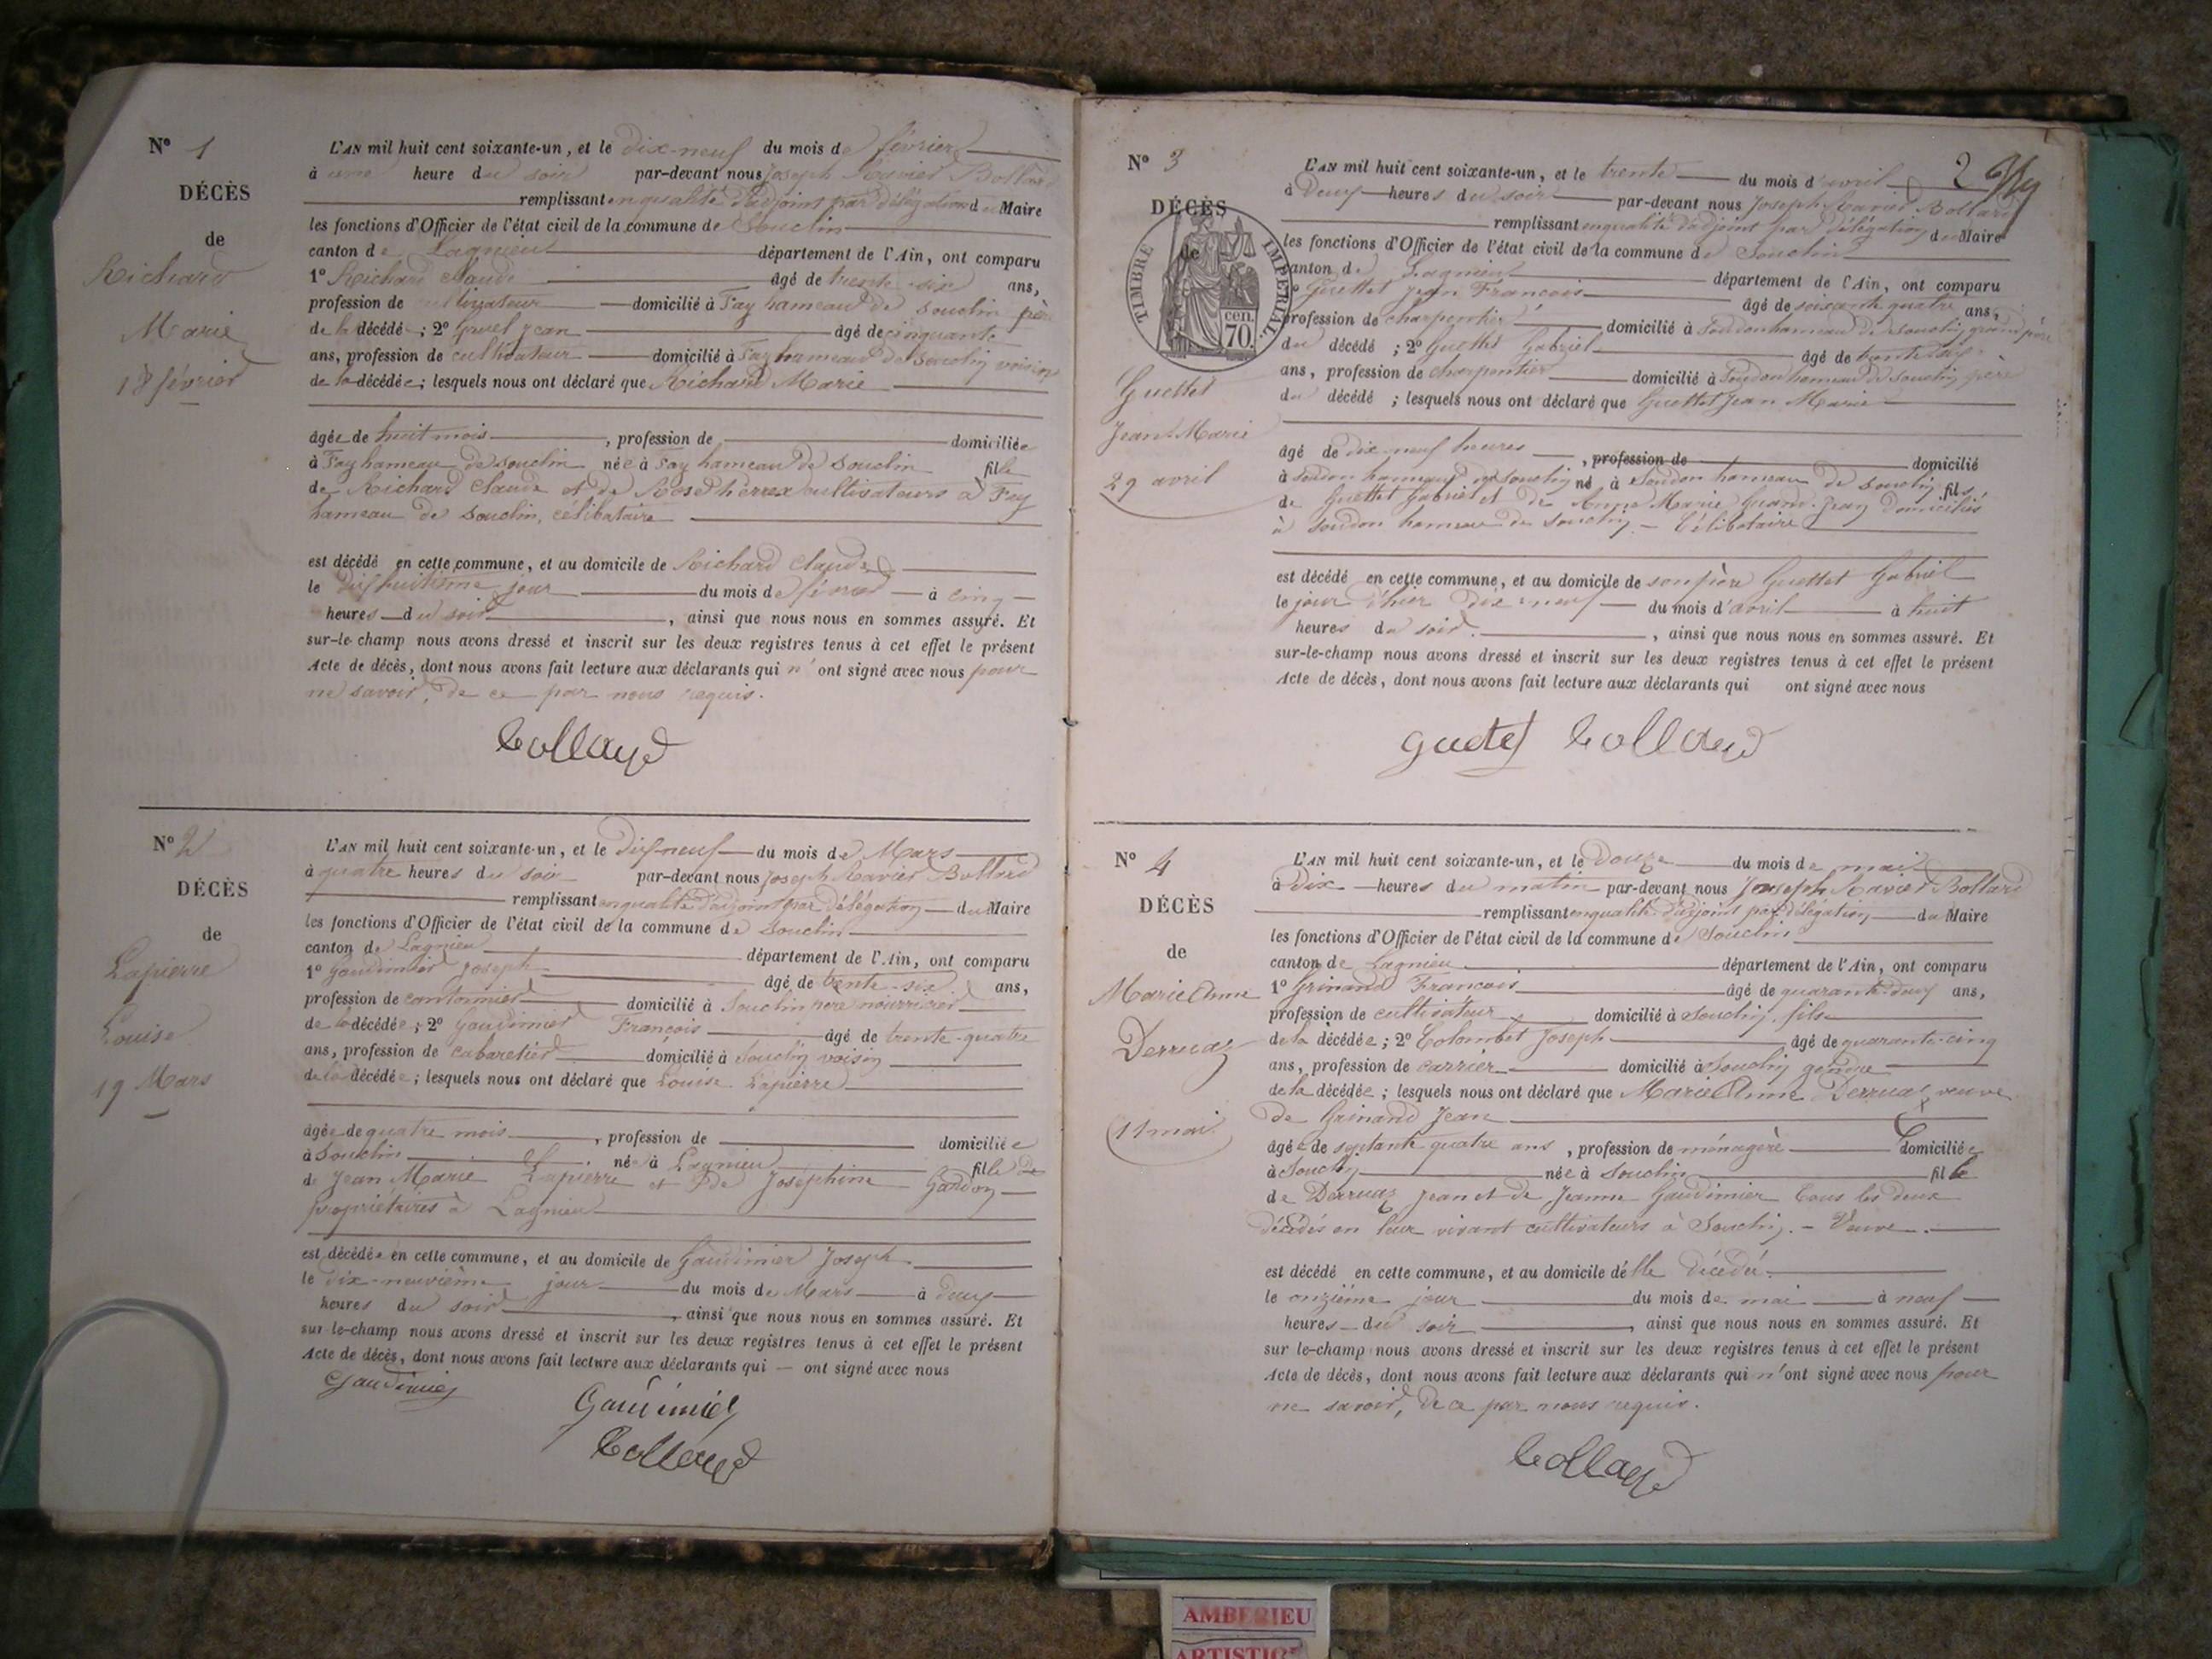 N° 1
DÉCÈS
de
Richard
Marie
18 février
L'AN mil huit cent soixante-un, et le dix-neuf du mois de février
à une heure du soir par-devant nous Joseph Xavier Bolland
remplissant en qualité d'adjoint par délégation du Maire
les fonctions d'Officier de l'état civil de la commune de Souclin
canton de Lagnieu département de l'Ain, ont comparu
1° Richard Claude âgé de trente-six ans,
profession de cultivateur domicilié à Fay hameau de Souclin père
de la décédée; 2° Gruel Jean âgé de cinquante
ans, profession de cultivateur domicilié à Fay hameau de Souclin voisin
de la décédée; lesquels nous ont déclaré que Richard Marie
âgée de huit mois, profession de domiciliée
à Fay hameau de Souclin née à Fay hameau de Souclin fille
de Richard Claude et de Rose cultivateurs à Fay
hameau de Souclin, célibataire
est décédé en cette commune, et au domicile de Richard Claude
le dixhuitième jour du mois de février à cinq
heures du soir, ainsi que nous nous en sommes assuré. Et
sur-le-champ nous avons dressé et inscrit sur les deux registres tenus à cet effet le présent
Acte de décès, dont nous avons fait lecture aux déclarants qui n'ont signé avec nous pour
ne savoir, de ce par nous requis.
Bolland
N° 2
DÉCÈS
de
Lapierre
Louise
19 Mars
L'AN mil huit cent soixante-un, et le dix-neuf du mois de Mars
à quatre heures du soir par-devant nous Joseph Xavier Bolland
remplissant en qualité d'adjoint par délégation du Maire
les fonctions d'Officier de l'état civil de la commune de Souclin
canton de Lagnieu département de l'Ain, ont comparu
1° Gaudimier Joseph âgé de trente-six ans,
profession de cantonnier domicilié à Souclin père nourricier
de la décédée; 2° Gaudimier François âgé de trente-quatre
ans, profession de cabaretier domicilié à Souclin voisin
de la décédée; lesquels nous ont déclaré que Louise Lapierre
âgée de quatre mois, profession de domiciliée
à Souclin née à Lagnieu fille de
de Jean Marie Lapierre et de Joséphine Gandon
propriétaires à Lagnieu
est décédée en cette commune, et au domicile de Gaudimier Joseph
le dix-neuvième jour du mois de Mars à deux
heures du soir, ainsi que nous nous en sommes assuré. Et
sur-le-champ nous avons dressé et inscrit sur les deux registres tenus à cet effet le présent
Acte de décès, dont nous avons fait lecture aux déclarants qui ont signé avec nous
Gaudimier
Gaudimier
Bolland
2
N° 3
DÉCÈS
de
TIMBRE IMPÉRIAL
70 cen.
Guettet
Jean Marie
29 avril
L'AN mil huit cent soixante-un, et le trente du mois d'avril
à Deux heures du soir par-devant nous Joseph Xavier Bolland
remplissant en qualité d'adjoint par délégation du Maire
les fonctions d'Officier de l'état civil de la commune de Souclin
canton de Lagnieu département de l'Ain, ont comparu
1° Guettet Jean François âgé de soixante quatre ans,
profession de charpentier domicilié à Soudon hameau de Souclin grand père
du décédé; 2° Guettet Gabriel âgé de trente
ans, profession de charpentier domicilié à Soudon hameau de Souclin père
du décédé; lesquels nous ont déclaré que Guettet Jean Marie
âgé de dix-neuf heures, profession de domicilié
à Soudon hameau de Souclin né à Soudon hameau de Souclin fils
de Guettet Gabriel et de Anne Marie Grand-Jean domiciliés
à Soudon hameau de Souclin - Célibataire
est décédé en cette commune, et au domicile de son père Guettet Gabriel
le jour d'hier dix-neuf du mois d'avril à huit
heures du soir, ainsi que nous nous en sommes assuré. Et
sur-le-champ nous avons dressé et inscrit sur les deux registres tenus à cet effet le présent
Acte de décès, dont nous avons fait lecture aux déclarants qui ont signé avec nous
guetet Bolland
N° 4
DÉCÈS
de
Marie Anne
Derruaz
11 mai
L'AN mil huit cent soixante-un, et le Douze du mois de mai
à dix heures du matin par-devant nous Joseph Xavier Bolland
remplissant en qualité d'adjoint par délégation du Maire
les fonctions d'Officier de l'état civil de la commune de Souclin
canton de Lagnieu département de l'Ain, ont comparu
1° Grinand François âgé de quarante-deux ans,
profession de cultivateur domicilié à Souclin fils
de la décédée; 2° Colombet Joseph âgé de quarante-cinq
ans, profession de carrier domicilié à Souclin gendre
de la décédée; lesquels nous ont déclaré que Marie Anne Derruaz, veuve
de Grinand Jean
âgée de septante quatre ans, profession de ménagère domiciliée
à Souclin née à Souclin fille
de Derruaz Jean et de Jeanne Gaudimier tous les deux
décédés en leur vivant cultivateurs à Souclin. - Veuve.
est décédé en cette commune, et au domicile de lle décédé.
le onzième jour du mois de mai à neuf
heures du soir, ainsi que nous nous en sommes assuré. Et
sur le-champ nous avons dressé et inscrit sur les deux registres tenus à cet effet le présent
Acte de décès, dont nous avons fait lecture aux déclarants qui n'ont signé avec nous pour
ne savoir, de ce par nous requis.
Bolland
AMBERIEU
ARTISTIQUE